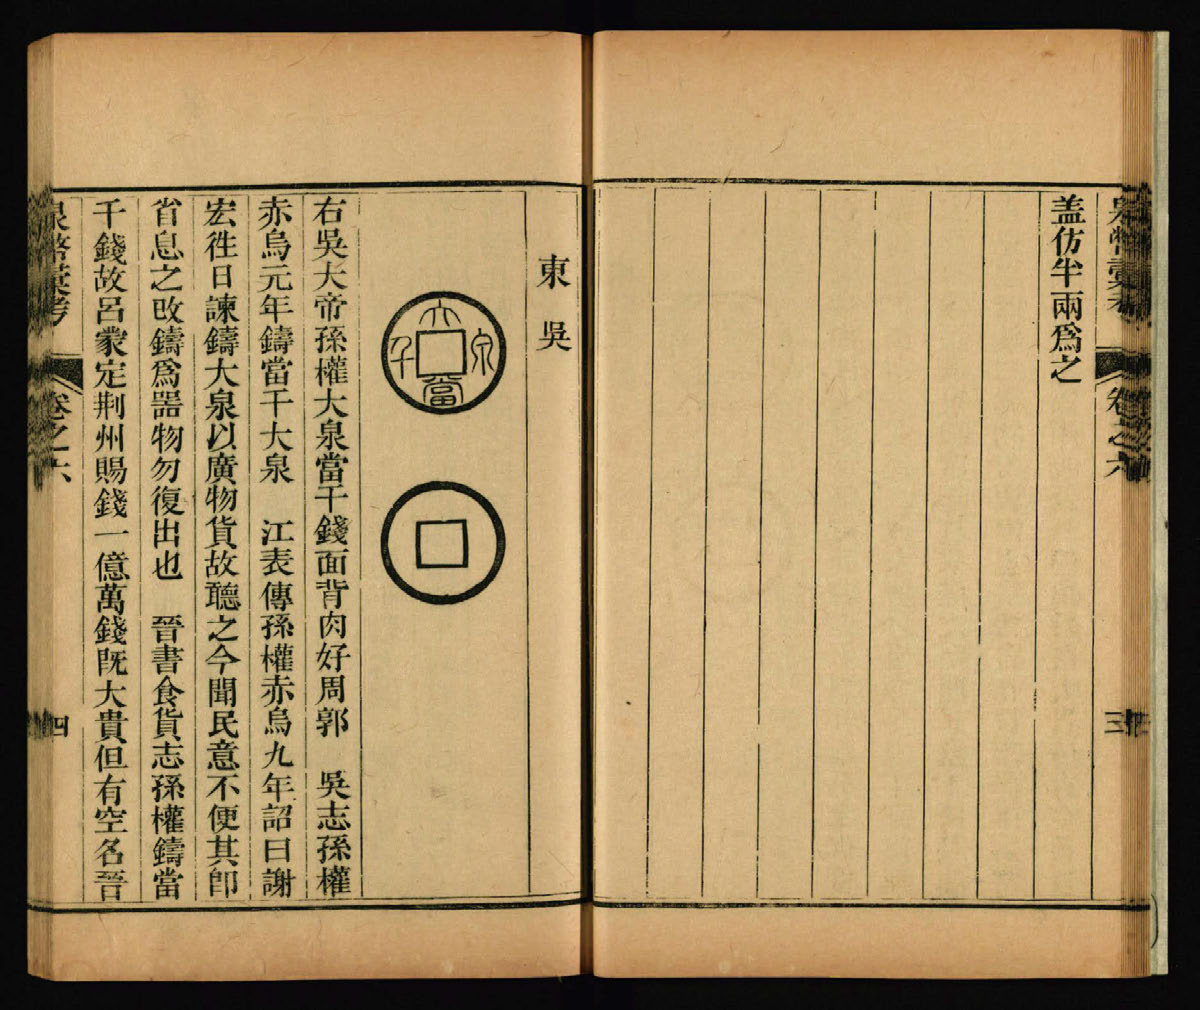 泉幣彙考
卷之六
三
盖仿半兩爲之
東吳
大泉當千
右吳大帝孫權大泉當千錢面背肉好周郭　吳志孫權
赤烏元年鑄當千大泉　江表傳孫權赤烏九年詔曰謝
宏徃日諫鑄大泉以廣物貨故聽之今聞民意不便其卽
省息之攺鑄爲噐物勿復出也　晉書食貨志孫權鑄當
千錢故呂蒙定荆州賜錢一億萬錢旣大貴但有空名晉
泉幣彙考
卷之六
四